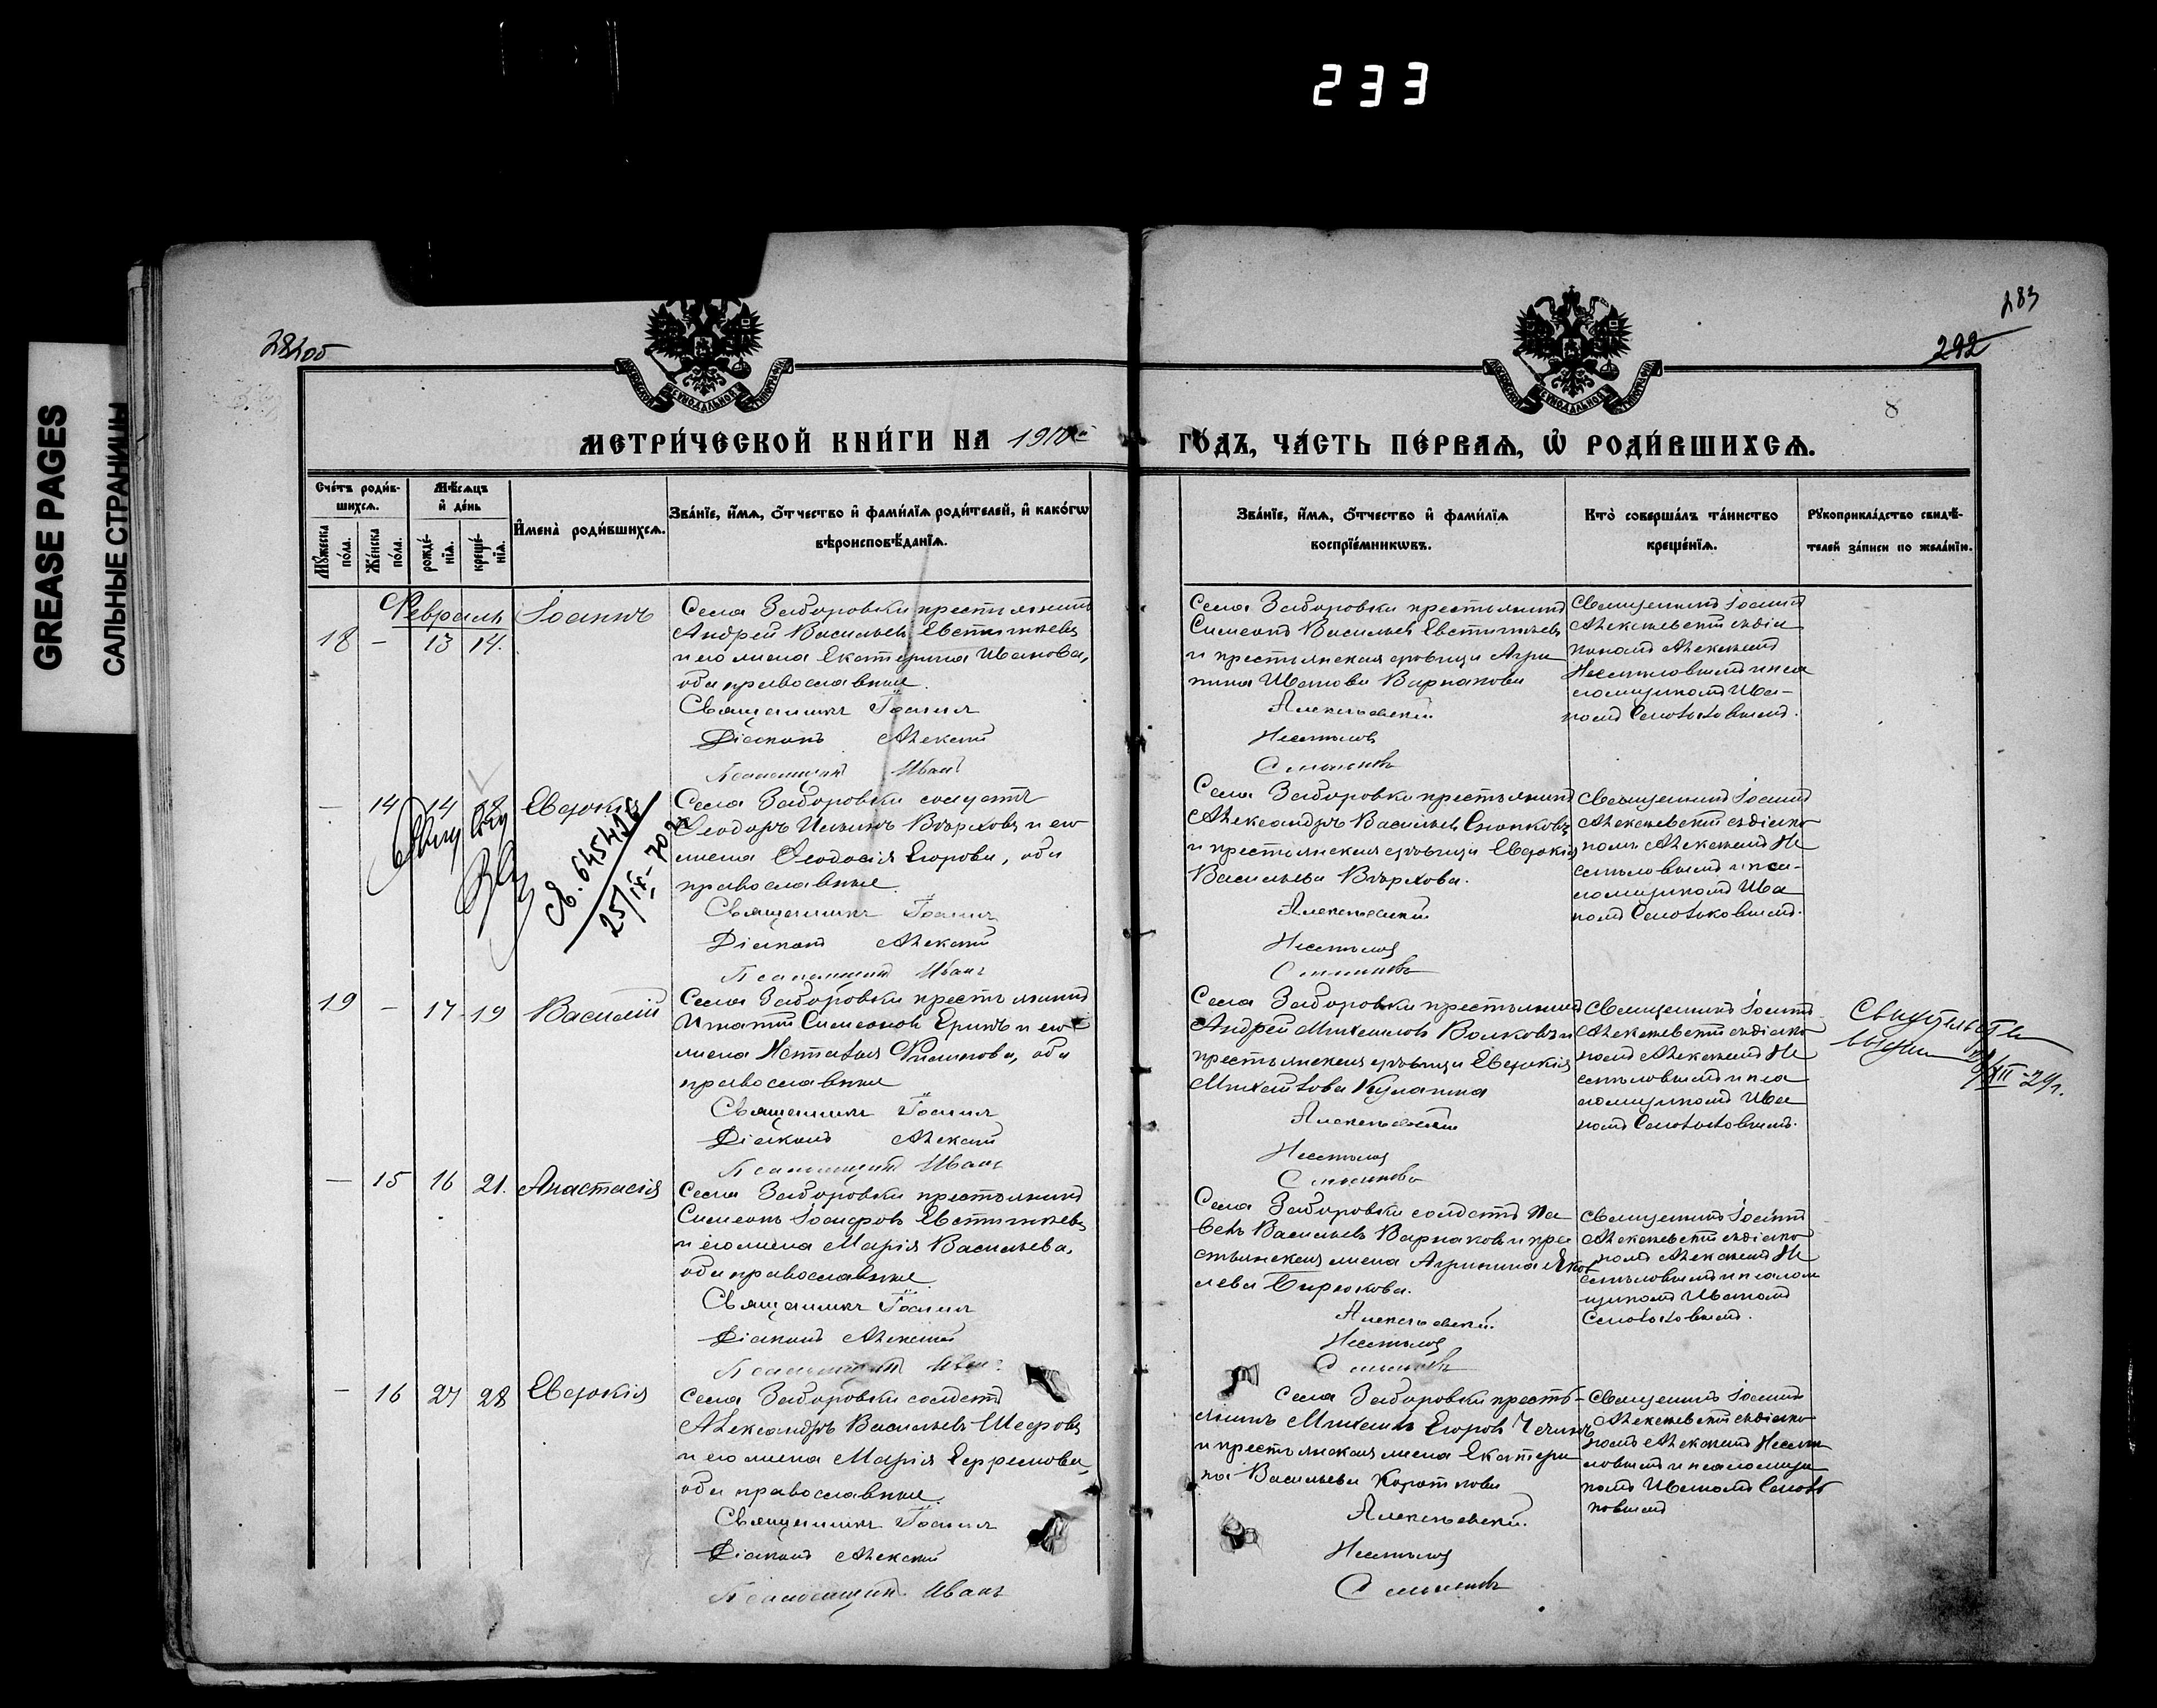 233
GREASE PAGES
САЛЬНЫЕ СТРАНИЦЫ
282об
283
292
8
МЕТРИ́ЧЕСКОЙ КНИ́ГИ НА 1910й
ГО́ДЪ, ЧА́СТЬ ПЕ́РВАѦ, Ѽ РОДИ́ВШИХСѦ.
Сче́тъ роди́в-
шихсѧ.
Мѣ́сѧцъ
и҆ де́нь
Мꙋ́жеска
по́ла.
Же́нска
по́ла.
рожде́-
нїѧ.
креще́-
нїѧ.
И҆мена̀ роди́вшихсѧ.
Зва́нїе, и҆́мѧ, ѻ҆́тчество и҆ фами́лїѧ роди́телей, и҆ како́гѡ
вѣроисповѣ́данїѧ.
Зва́нїе, и҆́мѧ, ѻ҆́тчество и҆ фами́лїѧ
воспрїе́мникѡвъ.
Кто̀ соверша́лъ та́инство
креще́нїѧ.
Рꙋкоприкла́дство свидѣ́-
телей за́писи по жела́нїю.
Февраль
18 - 13 14.
Іоаннъ
Села Заборовки крестьянинъ
Андрей Васильевъ Евстигнѣевъ
и его жена Екатерина Иванова,
оба православные.
Священникъ Іоаннъ
Діаконъ Алексій
Псаломщикъ Иванъ
Села Заборовки крестьянинъ
Симеонъ Васильевъ Евстигнѣевъ
и крестьянская дѣвица Агри
пина Иванова Варнакова
Алексѣевскій
Несмѣловъ
Священникъ Іоаннъ
Алексѣевскій съ діа
кономъ Алексѣемъ
Несмѣловымъ и пса
ломщикомъ Ива-
номъ
- 14 14 18
Евдокія
св. 645416
25/IX-70 г.
Села Заборовки солдатъ
Ѳеодоръ Ильинъ Вѣрховъ и его
жена Ѳеодосія Егорова, оба
православные.
Священникъ Іоаннъ
Діаконъ Алексій
Псаломщикъ Иванъ
Села Заборовки крестьянинъ
Александръ Васильевъ
и крестьянская дѣвица Евдокія
Васильева Вѣрхова.
Алексѣевскій
Несмѣловъ
Священникъ Іоаннъ
Алексѣевскій съ діако
номъ Алексѣемъ Не
смѣловымъ и пса-
ломщикомъ Ива
номъ
19 - 17 19
Василій
Села Заборовки крестьянинъ
Игнатій Симеоновъ Еринъ и его
жена Наталія Филипова, оба
православные
Священникъ Іоаннъ
Діаконъ Алексій
Псаломщикъ Иванъ
Села Заборовки крестьянинъ
Андрей Михаиловъ Волковъ и
крестьянская дѣвица Евдокія
Михайлова Кулагина
Алексѣевскій
Несмѣловъ
Священникъ Іоаннъ
Алексѣевскій съ діако
номъ Алексѣемъ Не
смѣловымъ и пса
ломщикомъ Ива
номъ
- 15 16 21.
Анастасія
Села Заборовки крестьянинъ
Симеонъ Іосифовъ Евстигнѣевъ
и его жена Марія Васильева,
оба православные
Священникъ Іоаннъ
Діаконъ Алексій
Псаломщикъ Иванъ
Села Заборовки солдатъ Па
велъ Васильевъ Варнаковъ и кре
стьянская жена Агрипина Яков
лева Бирюкова.
Алексѣевскій.
Несмѣловъ
Священникъ Іоаннъ
Алексѣевскій съ діако
номъ Алексѣемъ Не
смѣловымъ и псалом
щикомъ Иваномъ
- 16 27 28
Евдокія
Села Заборовки солдатъ
Александръ Васильевъ
и его жена Марія Ефремова,
оба православные.
Священникъ Іоаннъ
Діаконъ Алексій
Псаломщикъ Иванъ
Села Заборовки кресть-
янинъ Михаилъ Егоровъ
и крестьянская жена Екатери
на Васильева Короткова
Алексѣевскій.
Несмѣловъ
Священникъ Іоаннъ
Алексѣевскій съ діако
номъ Алексѣемъ Несмѣ
ловымъ и псаломщи
комъ Иваномъ